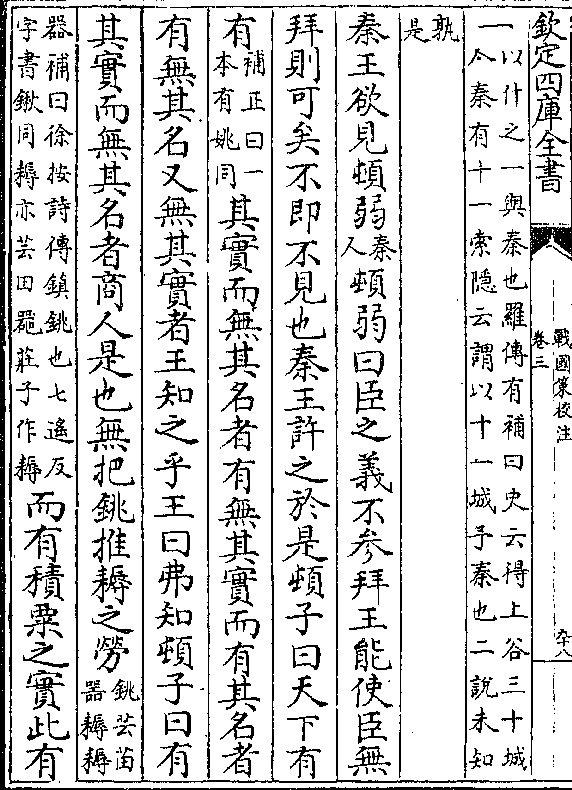 欽定四庫全書
戰國策校注
卷三
六十八
一以什之一與秦也羅傳有補曰史云得上谷三十城
令秦有十一索隱云謂以十一城予秦也二說未知
孰
是
秦王欲見頓弱秦人頓弱曰臣之義不參拜王能使臣無
拜則可矣不即不見也秦王許之於是頓子曰天下有
有補正曰一本有姚同其實而無其名者有無其實而有其名者
有無其名又無其實者王知之乎王曰弗知頓子曰有
其實而無其名者商人是也無把銚推耨之勞銚芸苗器耨耨
器補曰徐按詩傳鎮銚也七遙反字書鍬同耨亦芸田器莊子作耨而有積粟之實此有